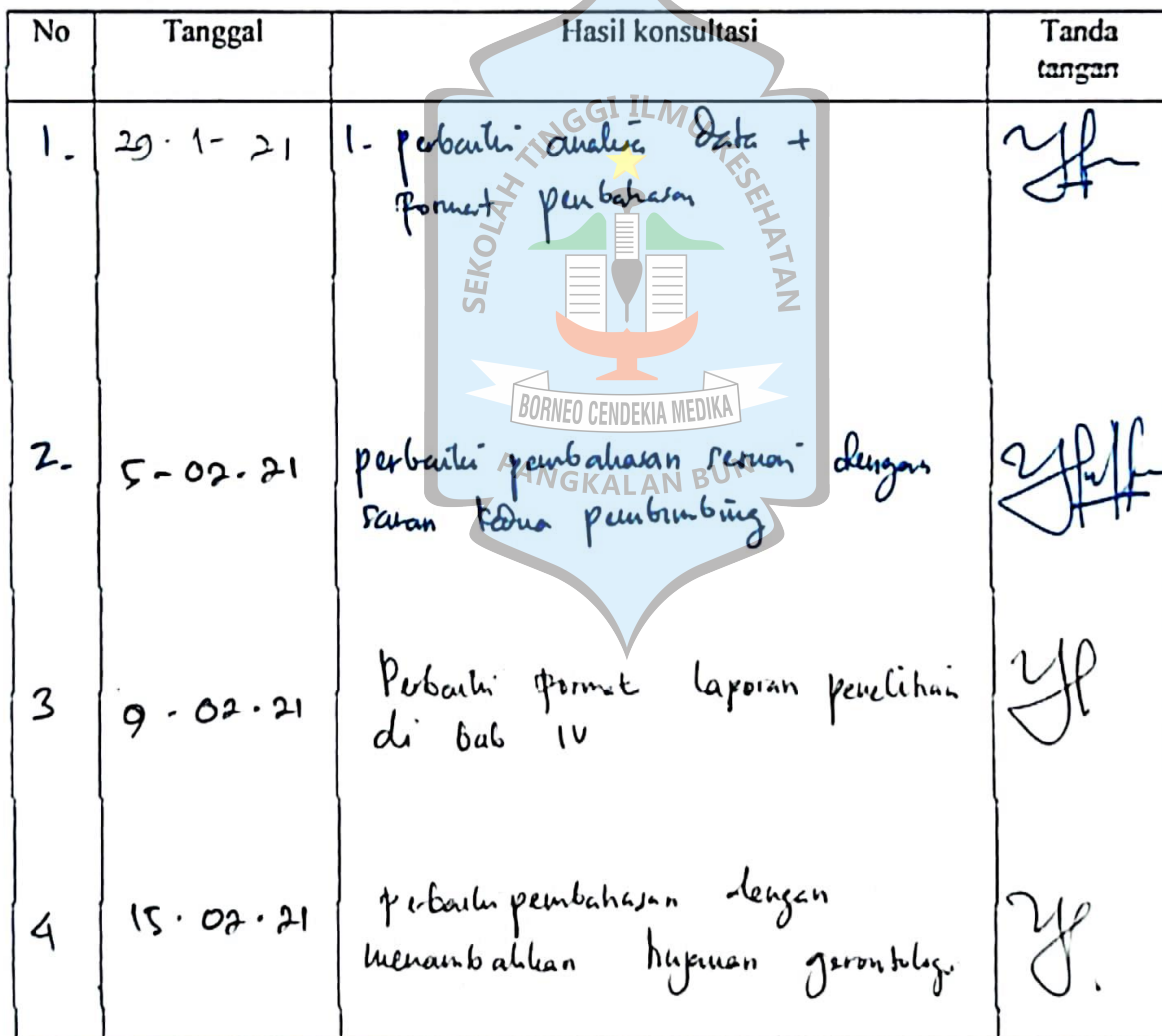 No Tanggal Hasil konsultasi Tanda tangan
1. 29-1-21 1- perbaiki analisa data +
format pembahasan
2. 5-02-21 perbaiki pembahasan sesuai dengan
saran kedua pembimbing
3 9-02-21 Perbaiki format laporan penelitian
di bab IV
4 15-02-21 perbaiki pembahasan dengan
menambahkan gerontologi
SEKOLAH TINGGI ILMU KESEHATAN
BORNEO CENDEKIA MEDIKA
PANGKALAN BUN